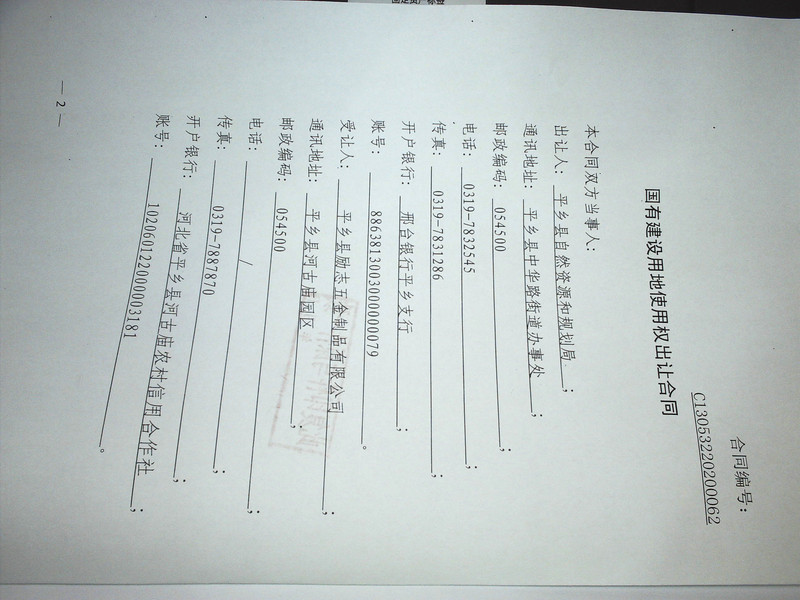 合同编号：
C13053220200062
国有建设用地使用权出让合同
本合同双方当事人：
出让人：平乡县自然资源和规划局；
通讯地址：平乡县中华路街道办事处；
邮政编码：054500；
电话：0319-7832545；
传真：0319-7831286；
开户银行：邢台银行平乡支行；
账号：886381300300000000079。
受让人：平乡县励志五金制品有限公司；
通讯地址：平乡县河古庙园区；
邮政编码：054500；
电话：/；
传真：0319-7887870；
开户银行：河北省平乡县河古庙农村信用合作社；
账号：102060122000003181。
— 2 —